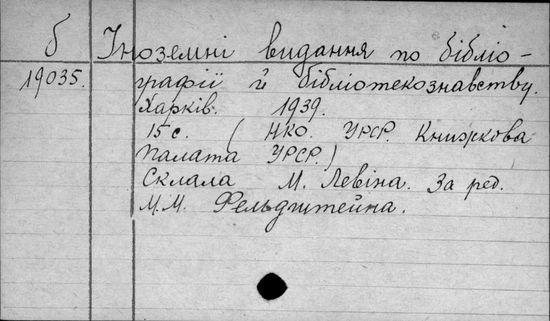 б Іноземні видання по бібліо-
19035. графії й бібліотекознавству.
Харків. 1939.
15 с. (НКО. УРСР. Книжкова
палата УРСР.)
Склала М. Левіна. За ред.
М.М. Фельдштейна.